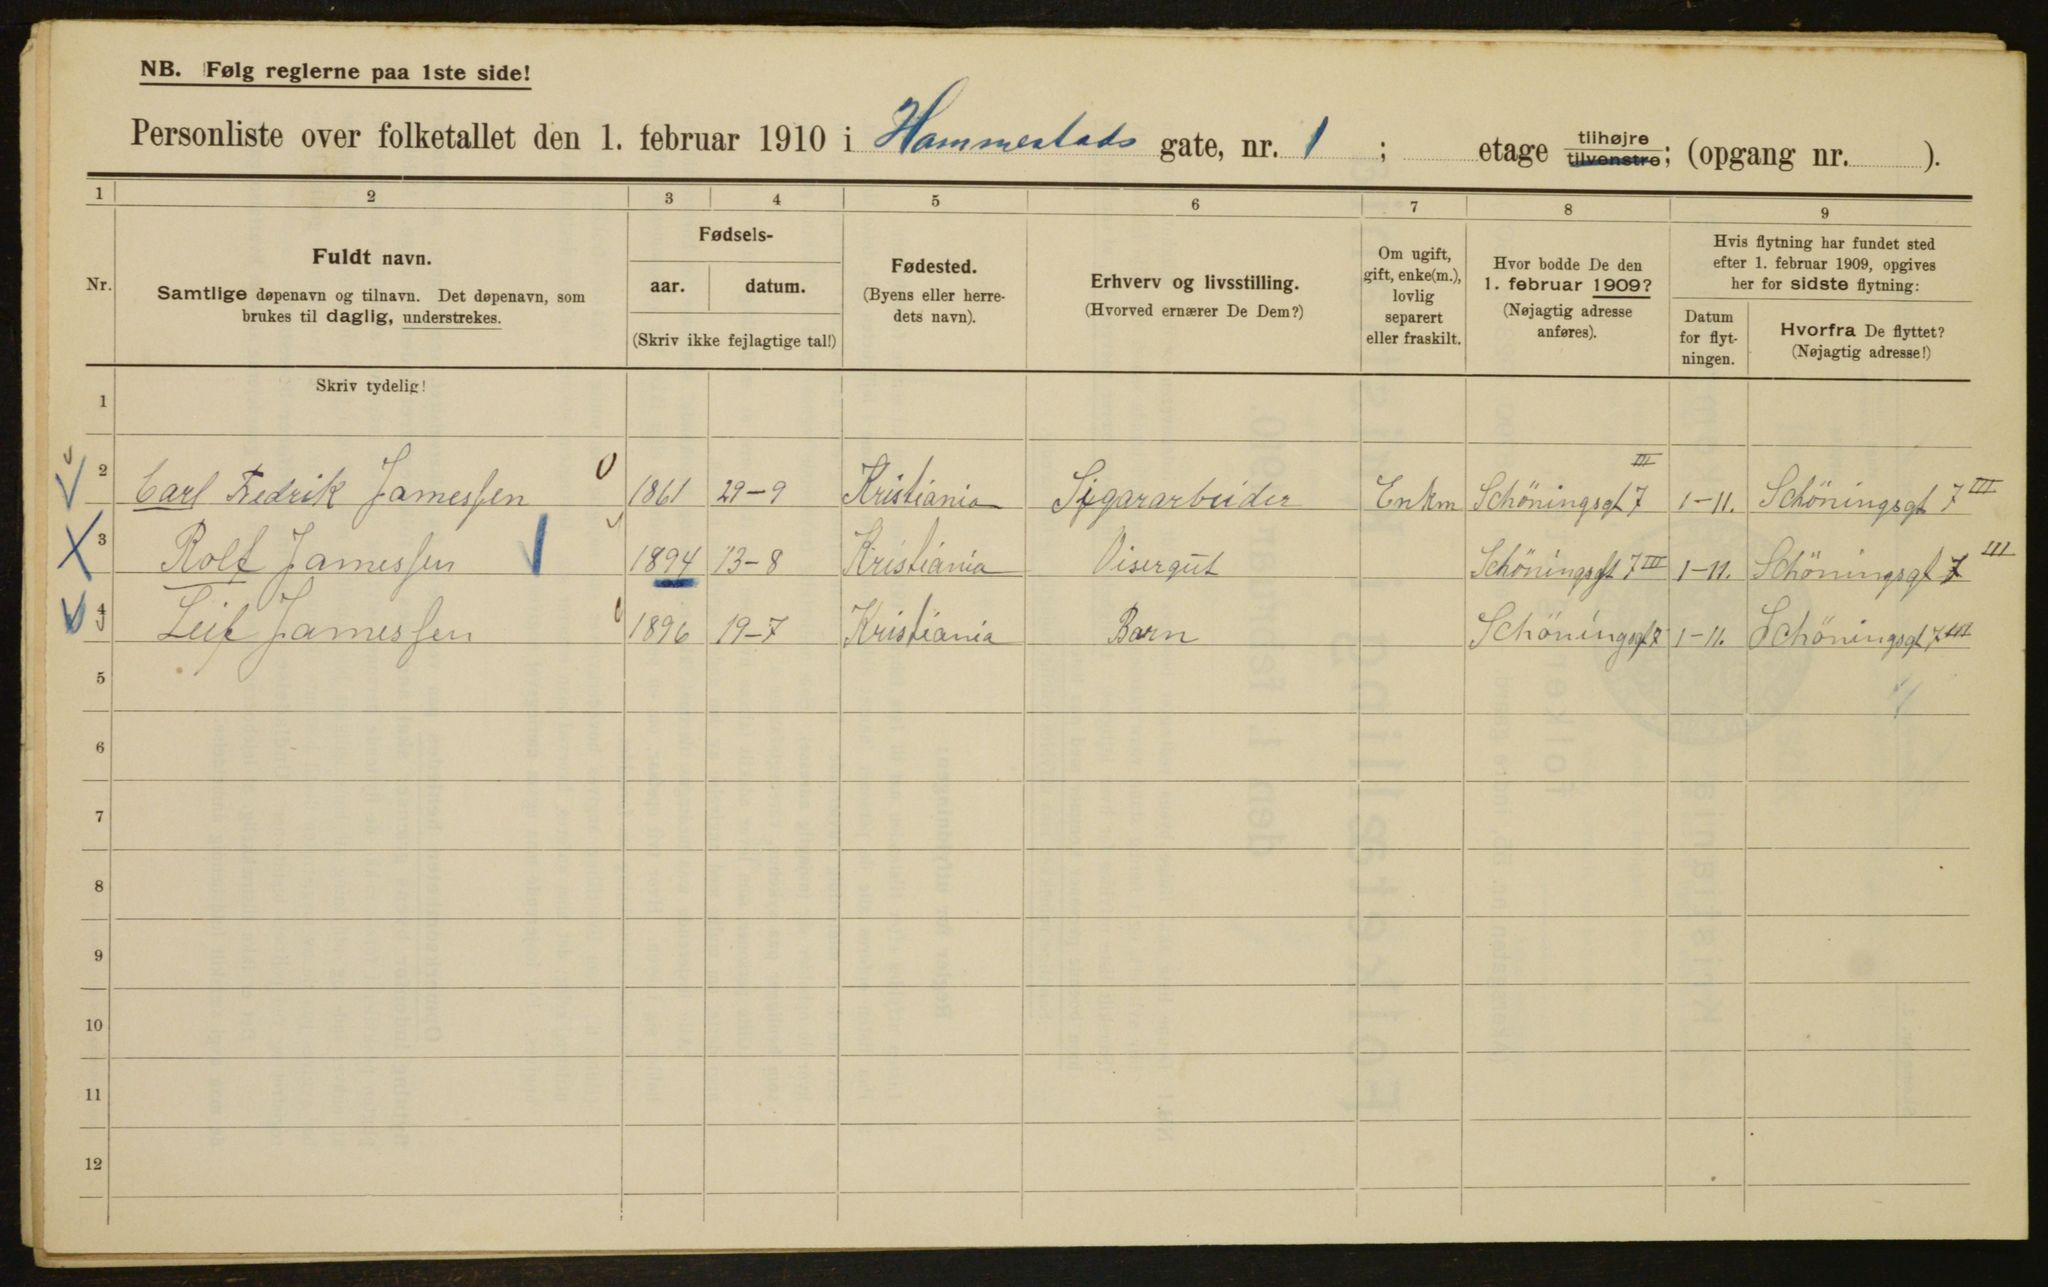 NB. Følg reglerne paa 1ste side!
Personliste over folketallet den 1. februar 1910 i Hammestads gate, nr. 1 ; etage tilhøjre tilvenstre; (opgang nr. ).
1 2 3 4 5 6 7 8 9
Nr.
Fuldt navn.
Samtlige døpenavn og tilnavn. Det døpenavn, som
brukes til daglig, understrekes.
Fødsels-
aar. datum.
(Skriv ikke fejlagtige tal!)
Fødested.
(Byens eller herre-
dets navn).
Erhverv og livsstilling.
(Hvorved ernærer De Dem?)
Om ugift,
gift, enke(m.),
lovlig
separert
eller fraskilt.
Hvor bodde De den
1. februar 1909?
(Nøjagtig adresse
anføres).
Hvis flytning har fundet sted
efter 1. februar 1909, opgives
her for sidste flytning:
Datum
for flyt-
ningen.
Hvorfra De flyttet?
(Nøjagtig adresse!)
Skriv tydelig!
1
2 Carl Fredrik Jamessen 1861 29-9 Kristiania Sigararbeider Enkm Schöningsgt 7 III 1-11. Schöningsgt 7 III
3 Rolf Jamessen 1894 13-8 Kristiania Visergut Schöningsgt 7 III 1-11. Schöningsgt 7 III
4 Leif Jamessen 1896 19-7 Kristiania Barn Schöningsgt 7 1-11. Schöningsgt 7 III
5
6
7
8
9
10
11
12